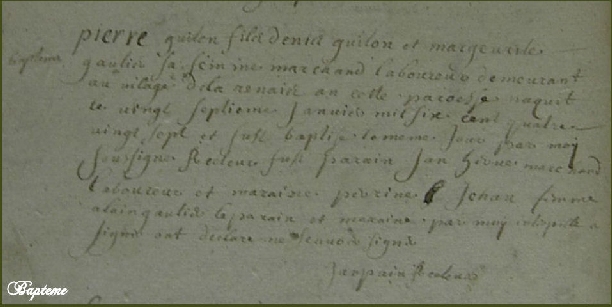 pierre guilon fils denis guilon et margeurite
Bapteme
gaulier sa femme marchand laboureur demeurant
au vilage de la renais an cette paroesse naquit
le vingt septieme Janvier mil six cent quatre
vingt sept et fust baptise le meme Jour par moy
soussigne Recteur fust parain Jan marchand
laboureur et maraine perrine Jehan femme
alain gaulier le parain et maraine par moy
signe ont declare ne scavoir signe
Recteur
Bapteme